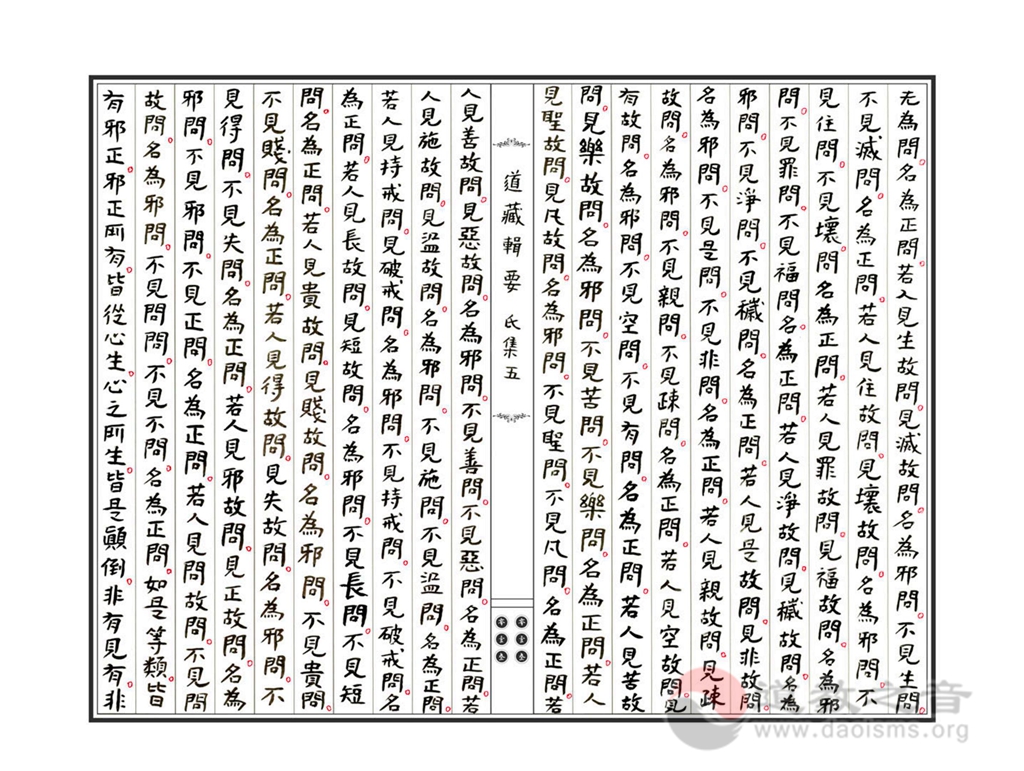 无為問。名為正問。若人見生故問。見滅故問。名為邪問。不見生問。
不見滅問。名為正問。若人見住故問。見壞故問。名為邪問。不
見住問。不見壞問。名為正問。若人見罪故問。見福故問。名為邪
問。不見罪問。不見福問。名為正問。若人見淨故問。見穢故問。名為
邪問。不見淨問。不見穢問。名為正問。若人見是故問。見非故問。
名為邪問。不見是問。不見非問。名為正問。若人見親故問。見疎
故問。名為邪問。不見親問。不見疎問。名為正問。若人見空故問。見
有故問。名為邪問。不見空問。不見有問。名為正問。若人見苦故
問。見樂故問。名為邪問。不見苦問。不見樂問。名為正問。若人
見聖故問。見凡故問。名為邪問。不見聖問。不見凡問。名為正問。若
道藏輯要 氏集五
人見善故問。見惡故問。名為邪問。不見善問。不見惡問。名為正問。若
人見施故問。見盜故問。名為邪問。不見施問。不見盜問。名為正問。
若人見持戒問。見破戒問。名為邪問。不見持戒問。不見破戒問。名
為正問。若人見長故問。見短故問。名為邪問。不見長問。不見短
問。名為正問。若人見貴故問。見賤故問。名為邪問。不見貴問。
不見賤問。名為正問。若人見得故問。見失故問。名為邪問。不
見得問。不見失問。名為正問。若人見邪故問。見正故問。名為
邪問。不見邪問。不見正問。名為正問。若人見問故問。不見問
故問。名為邪問。不見問問。不見不問。名為正問。如是等類。皆
有邪正。邪正所有。皆從心生。心之所生。皆是顛倒。非有見有。非
道教之音
www.daoisms.org